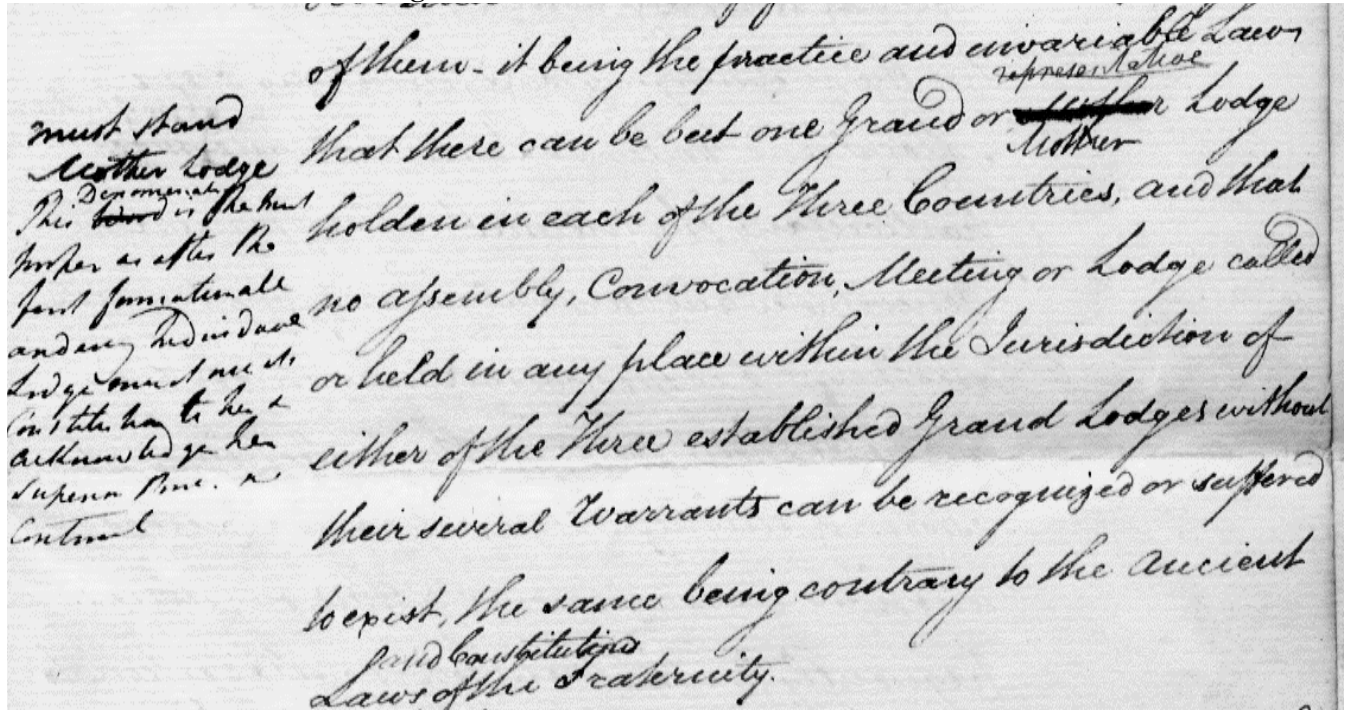 must stand
Mother Lodge
Denominati
This is the most
proper as after the
first formation all
and any Individual
Lodge must
Constitution to her &
acknowledge her
Superior &
Control
of them - it being the practice and invariable Laws
representative
that there can be but one Grand or Mother Lodge
Mother
holden in each of the Three Countries, and that
no assembly, Convocation, Meeting or Lodge called
or held in any place within the Jurisdiction of
either of the Three established Grand Lodges without
their several Warrants can be recognized or suffered
to exist, the same being contrary to the Ancient
and Constitutions
Laws of the Fraternity.